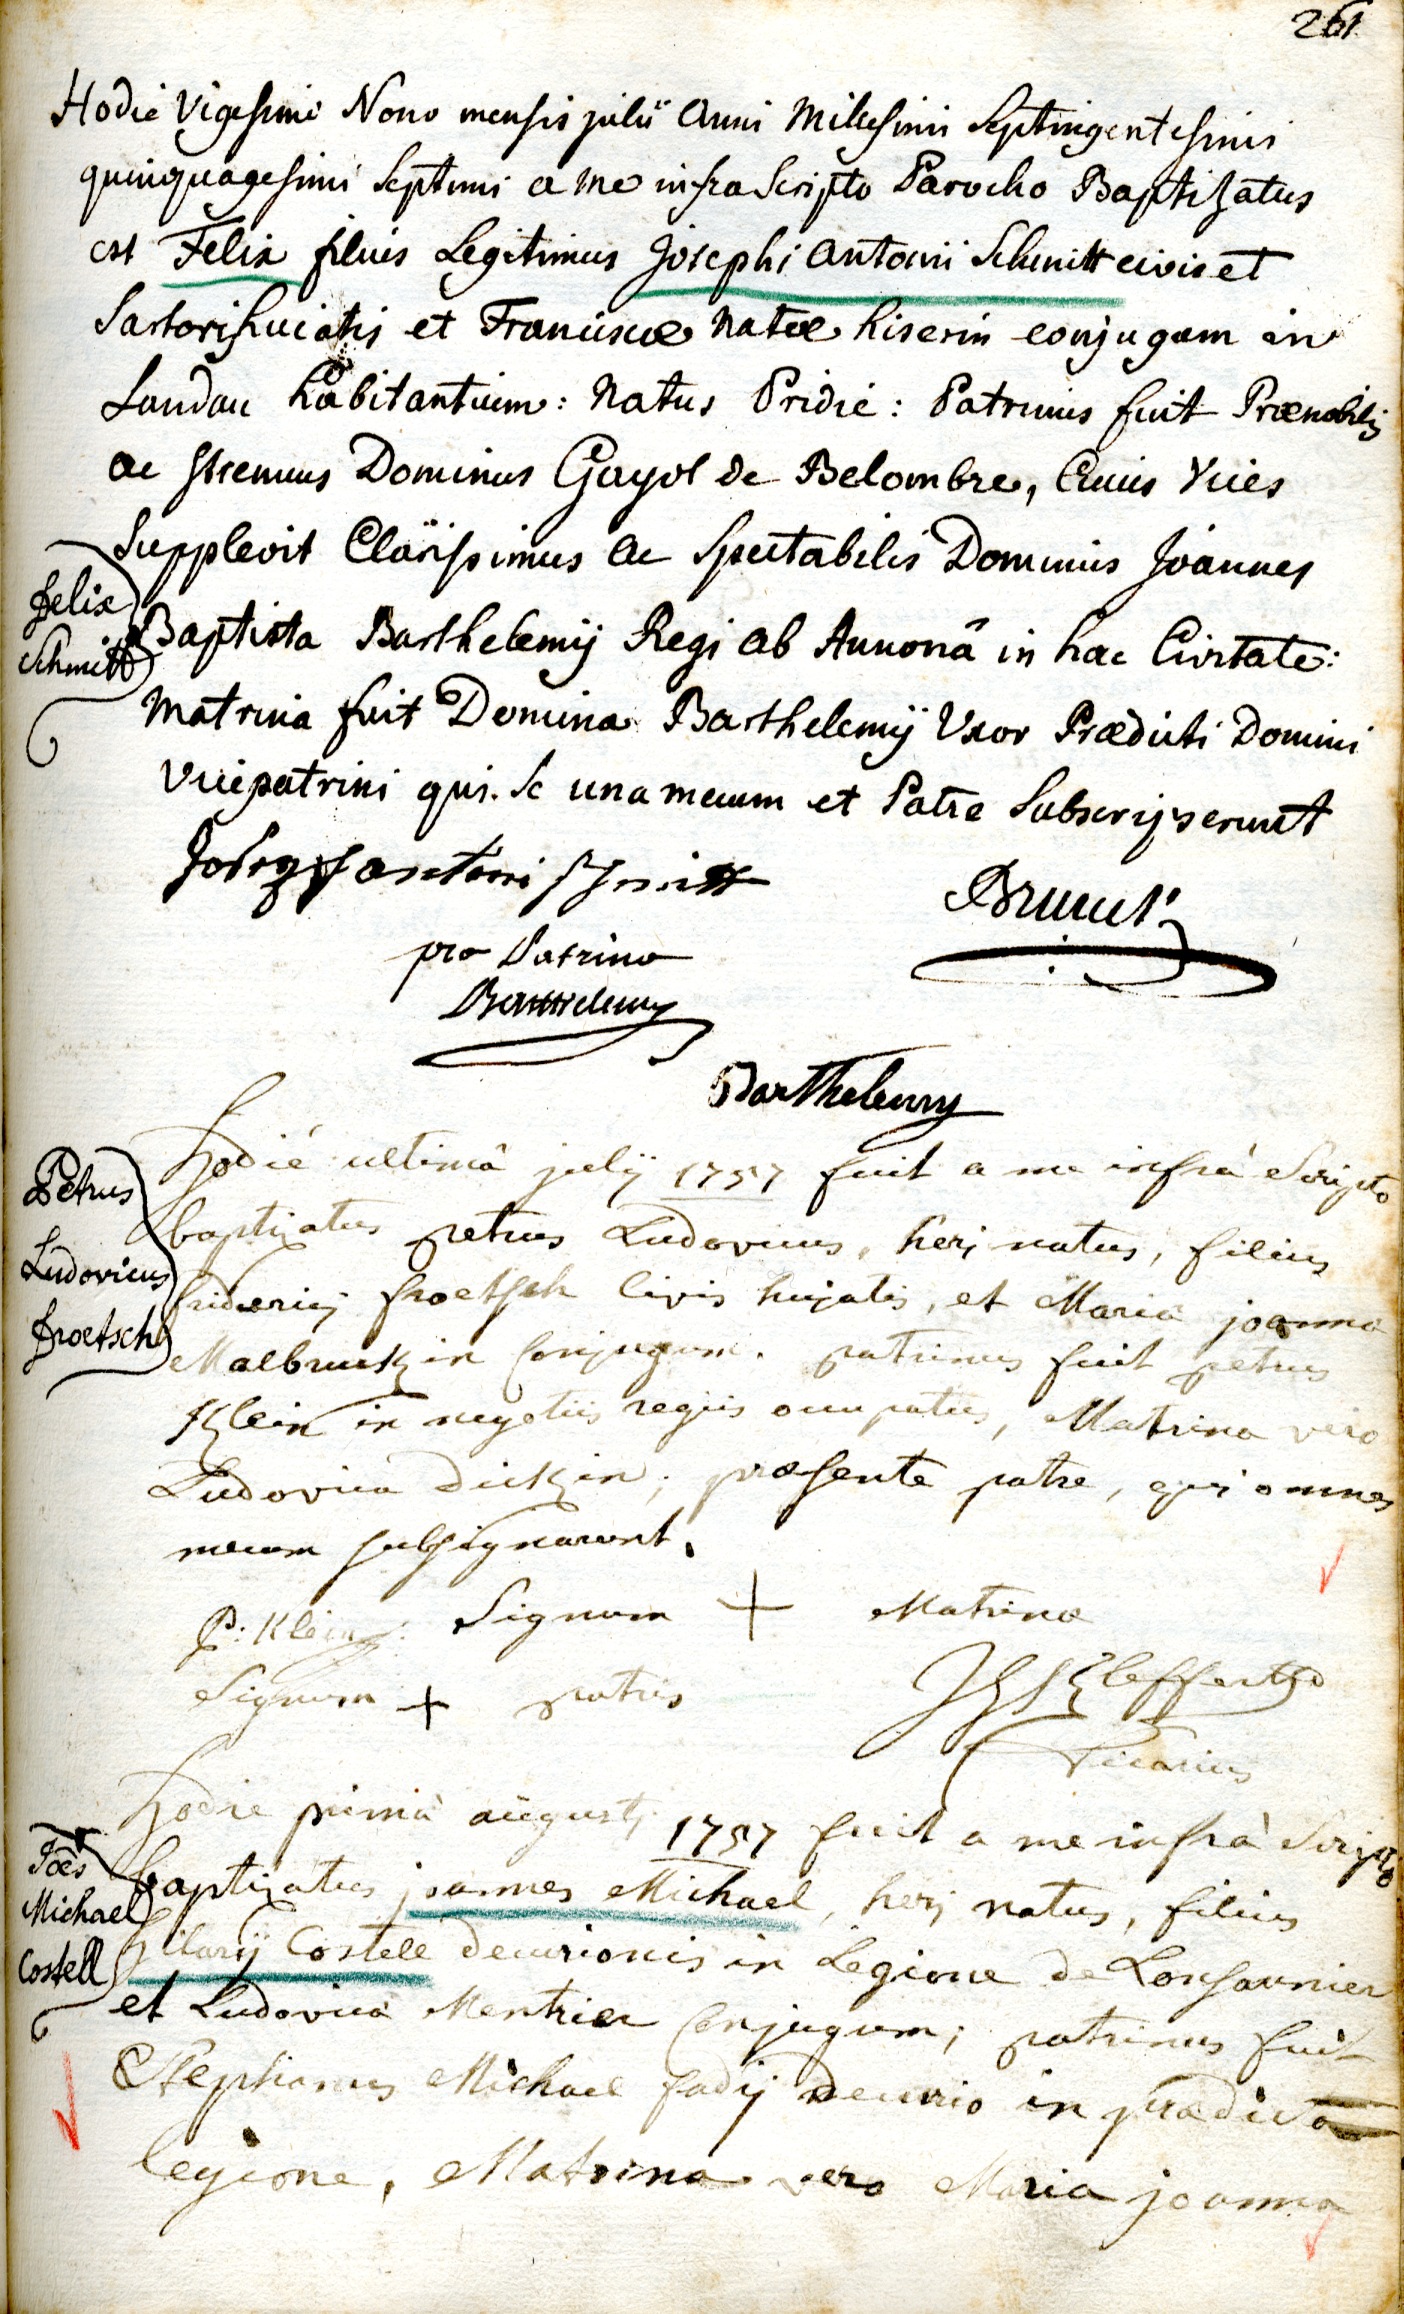 261
Hodie Vigesimi Nono mensis julii Anni Millesimi Septingentesimi
quinquagesimi Septimi a me infra Scripto Parocho Baptizatus
est Felix filius Legitimus Josephi Antonii Schmitt civis et
Sartoris huiatis et Franciscæ natæ hiserin conjugum in
Landau habitantium: Natus Pridie: Patrinus fuit Prænobilis
ac strenuus Dominus Gayot de Belombre, Cuius Vices
Supplevit Clarissimus ac Spectabilis Dominus Joannes
Baptista Barthelemij Regi ab Annonâ in hac Civitate:
Matrina fuit Domina Barthelemij Uxor Prædicti Domini
Vicepatrini qui Se una mecum et Patre Subscripserunt
Felix
Schmitt
Joseph antoni Schmitt
Brunck
pro Patrino
Barthelemy
Barthelemy
Hodié ultimâ julij 1757 fuit a me infrà Scripto
baptizatus petrus Ludovicus, herj natus, filius
friderici froetsch Civis hujatis, et Maria joanna
Malbruckin Conjugum. patrinus fuit petrus
Klein in negotiis regiis occupatus, Matrina vero
Ludovica Dickin; præsente patre, qui omnes
mecum subsignarunt.
Petrus
Ludovicus
froetsch
P: Klein: Signum + Matrinæ
Signum + patris
Vicarius
Hodie primâ augustj 1757 fuit a me infrà Scripto
baptizatus joannes Michael, herj natus, filius
hilarij Costele decurionis in Legione de Lonsaunier
et Ludovica Mentrier Conjugum; patrinus fuit
Stephanus Michael fadij decurio in prædicta
legione, Matrina vero Maria joanna
Joes
Michael
Costell